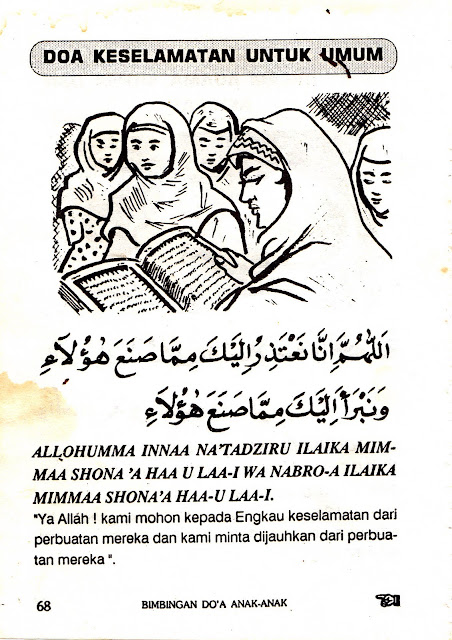 DOA KESELAMATAN UNTUK UMUM
اَللّٰهُمَّ اِنَّا نَعْتَذِرُ اِلَيْكَ مِمَّا صَنَعَ هٰؤُلَاءِ
وَنَبْرَأُ اِلَيْكَ مِمَّا صَنَعَ هٰؤُلَاءِ
ALLOHUMMA INNAA NA'TADZIRU ILAIKA MIM-
MAA SHONA 'A HAA U LAA-I WA NABRO-A ILAIKA
MIMMAA SHONA'A HAA-U LAA-I.
"Ya Alláh ! kami mohon kepada Engkau keselamatan dari
perbuatan mereka dan kami minta dijauhkan dari perbua-
tan mereka ".
68 BIMBINGAN DO'A ANAK-ANAK